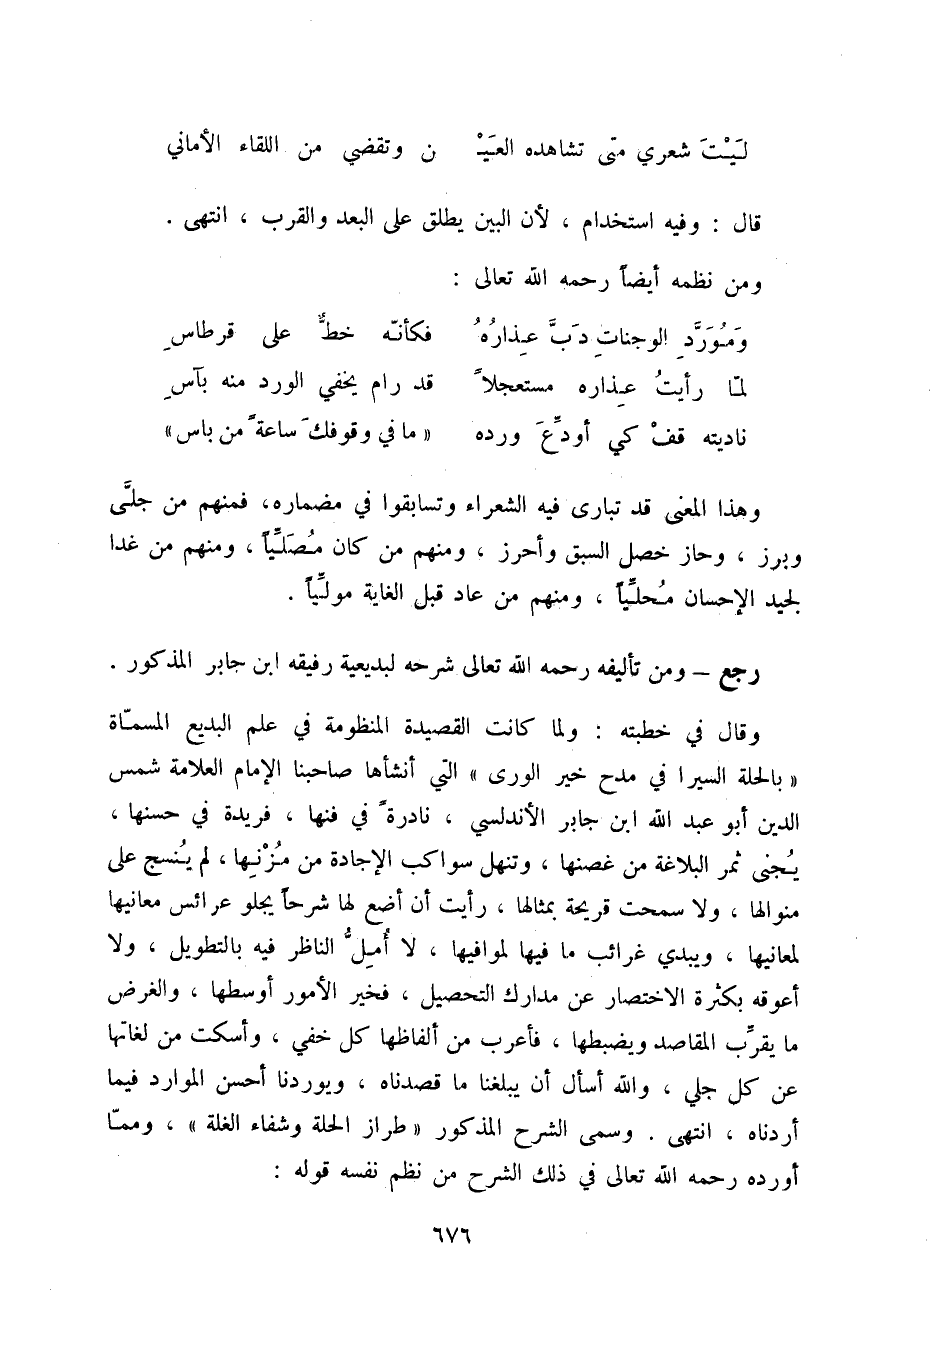 لَيْتَ شعري متى تشاهده العَيْـ ن وتقضي من اللقاء الأماني
قال : وفيه استخدام ، لأن البين يطلق على البعد والقرب ، انتهى .
ومن نظمه أيضاً رحمه الله تعالى :
وَمُوَرَّدِ الوجناتِ دَبَّ عِذارُهُ فكأنّه خطٌّ على قرطاسِ
لمّا رأيتُ عِذاره مستعجلاً قد رام يخفي الورد منه بآسِ
ناديته قفْ كي أودِّعَ ورده « ما في وقوفكَ ساعةً من باس »
وهذا المعنى قد تبارى فيه الشعراء وتسابقوا في مضماره، فمنهم من جلَّى
وبرز ، وحاز خصل السبق وأحرز ، ومنهم من كان مُصَلِّياً ، ومنهم من غدا
لجيد الإحسان مُحلِّياً ، ومنهم من عاد قبل الغاية مولِّياً .
رجع – ومن تأليفه رحمه الله تعالى شرحه لبديعية رفيقه ابن جابر المذكور .
وقال في خطبته : ولما كانت القصيدة المنظومة في علم البديع المسمّاة
« بالحلة السيرا في مدح خير الورى » التي أنشأها صاحبنا الإمام العلامة شمس
الدين أبو عبد الله ابن جابر الأندلسي ، نادرةً في فنها ، فريدة في حسنها ،
يُجنى ثمر البلاغة من غصنها ، وتنهل سواكب الإجادة من مُزْنِها ، لم يُنسج على
منوالها ، ولا سمحت قريحة بمثالها ، رأيت أن أضع لها شرحاً يجلو عرائس معانيها
لمعانيها ، ويبدي غرائب ما فيها لموافيها ، لا أُمِلُّ الناظر فيه بالتطويل ، ولا
أعوقه بكثرة الاختصار عن مدارك التحصيل ، فخير الأمور أوسطها ، والغرض
ما يقرِّب المقاصد ويضبطها ، فأعرب من ألفاظها كل خفي ، وأسكت من لغاتها
عن كل جلي ، والله أسأل أن يبلغنا ما قصدناه ، ويوردنا أحسن الموارد فيما
أردناه ، انتهى . وسمى الشرح المذكور « طراز الحلة وشفاء الغلة » ، وممّا
أورده رحمه الله تعالى في ذلك الشرح من نظم نفسه قوله :
٦٧٦